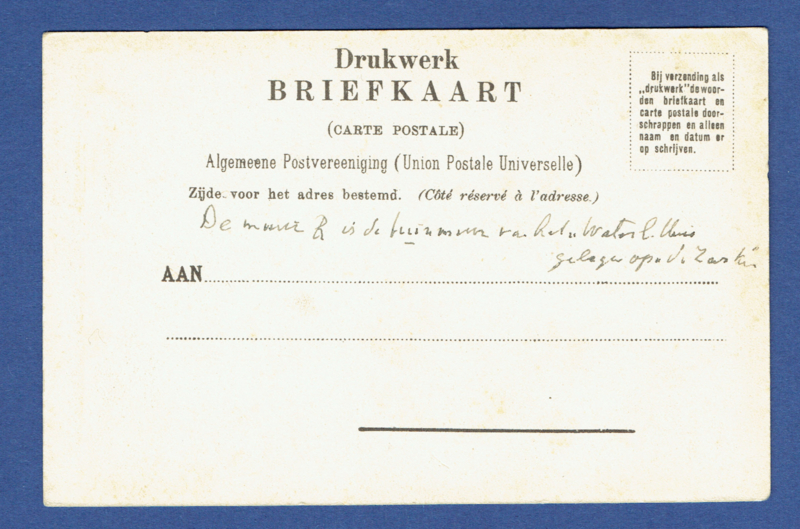 Drukwerk
BRIEFKAART
(CARTE POSTALE)
Algemeene Postvereeniging (Union Postale Universelle)
Zijde voor het adres bestemd. (Côté réservé à l'adresse.)
Bij verzending als
„drukwerk" de woor-
den briefkaart en
carte postale door-
schrappen en alleen
naam en datum er
op schrijven.
De muur is de tuinmuur
AAN